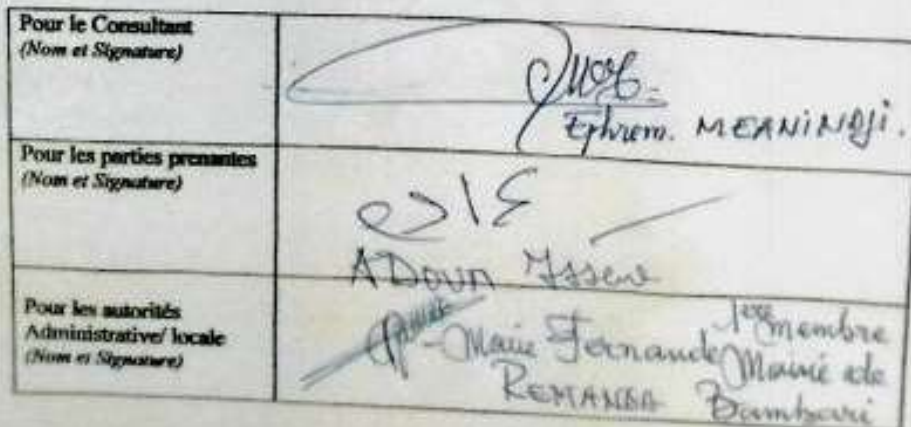 Pour le Consultant
(Nom et Signature)
Ephrem. MEANINDJI.
Pour les parties prenantes
(Nom et Signature)
ADOUM Issene
Pour les autorités
Administrative/ locale
(Nom et Signature)
Marie Fernande
REMANDA
1ère membre
Mairie de
Bambari